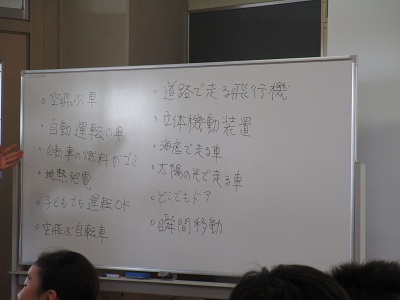 ・空飛ぶ車
・自動運転の車
・自動車の燃料がゴミ
・地熱発電
・子どもでも運転OK
・空飛ぶ自転車
・道路で走る飛行機
・立体機動装置
・海底で走る車
・太陽の光で走る車
・どこでもドア
・瞬間移動